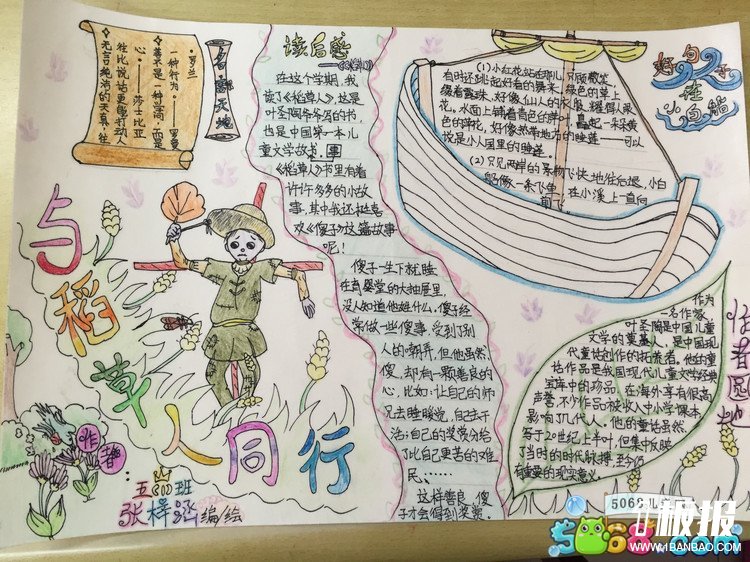 名言天地
·罗兰
一种行为。——罗曼
善不是一种学问，而是
心。——莎士比亚
往比说话更能打动人
无言纯洁的天真，往
与稻草人同行
作者：
五(1)班
编绘
读后感
在这个学期，我
读了《稻草人》，这是
叶圣陶爷爷写的书，
也是中国第一本儿
童文学故书事
《稻草人》书里有着
许许多多的小故
事，其中我还挺喜
欢《傻子》这篇故事
呢！
傻子一生下就睡
在育婴堂的大抽屉里，
没人知道他姓什么，傻子经
常做一些傻事，受到了别
人的嘲弄，但他虽然
傻，却有一颗善良的
心，比如：让自己的师
兄去睡睡觉，自己去干
活；自己的奖赏分给
了比自己更苦的难
民……
这样善良，傻
子才会得到奖赏。
好句子在
小白船
(1)小红花站在那儿，只顾微笑，
有时还跳起好看的舞来，绿色的草上
缀着露珠，好像仙人的衣服，耀得人眼
花。水面上铺着青色的萍叶，矗起一朵朵黄
色的萍花，好像热带地方的睡莲——可以
说是小人国里的睡莲。
(2)只见两岸的景物飞快地往后退，小白
船像一条飞鱼，在小溪上一直向
前
作者园地
作为
一名作家，
叶圣陶是中国儿童
文学的奠基人，是中国现
代童话创作的拓荒者。他的童
话作品是我国现代儿童文学经典
宝库中的珍品，在海外享有很高
声誉，不少作品被收入中小学课本，
影响了几代人。他的童话虽然
写于20世纪上半叶，但集中反映
了当时的时代脉搏，至今仍
有重要的现实意义。
5068儿
5068.com
1极报
WWW.1BANBAO.COM